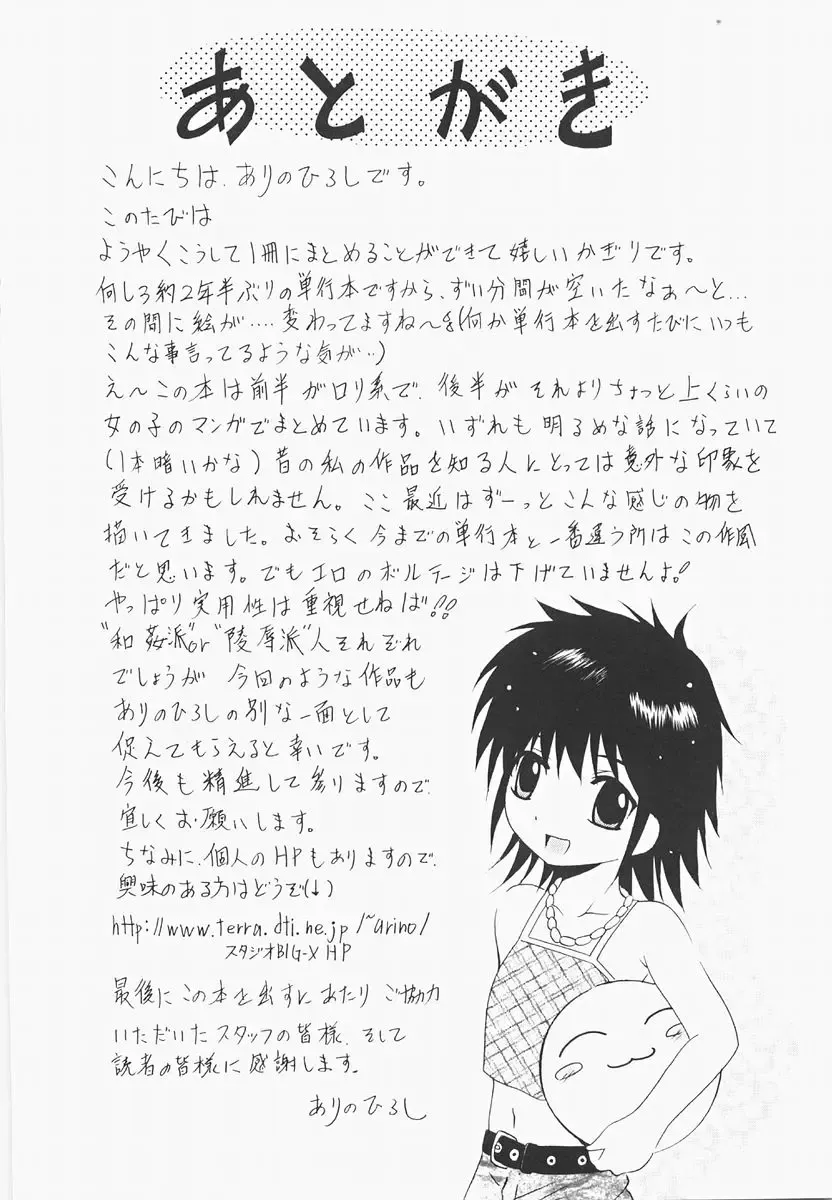 あとがき
こんにちは、ありのひろしです。
このたびは
ようやくこうして1冊にまとめることができて嬉しいかぎりです。
何しろ約2年半ぶりの単行本ですから、ずい分間が空いたなぁ〜と…
その間に絵が‥‥変わってますね〜(何か単行本を出すたびにいつも
こんな事言ってるような気が‥)
え〜この本は前半がロリ系で、後半がそれよりちょっと上くらいの
女の子のマンガでまとめています。いずれも明るめな話になっていて
(1本暗いかな)昔の私の作品を知る人にとっては意外な印象を
受けるかもしれません。ここ最近はずーっとこんな感じの物を
描いてきました。おそらく今までの単行本と一番違う所はこの作風
だと思います。でもエロのボルテージは下げていませんよ!
やっぱり実用性は重視せねば!!
"和姦派"or"陵辱派"人それぞれ
でしょうが 今回のような作品も
ありのひろしの別な一面として
捉えてもらえると幸いです。
今後も精進して参りますので、
宜しくお願いします。
ちなみに、個人のHPもありますので、
興味のある方はどうぞ(↓)
http://www.terra.dti.ne.jp/~arino/
スタジオBIG-X HP
最後にこの本を出すにあたりご協力
いただいたスタッフの皆様、そして
読者の皆様に感謝します。
ありのひろし